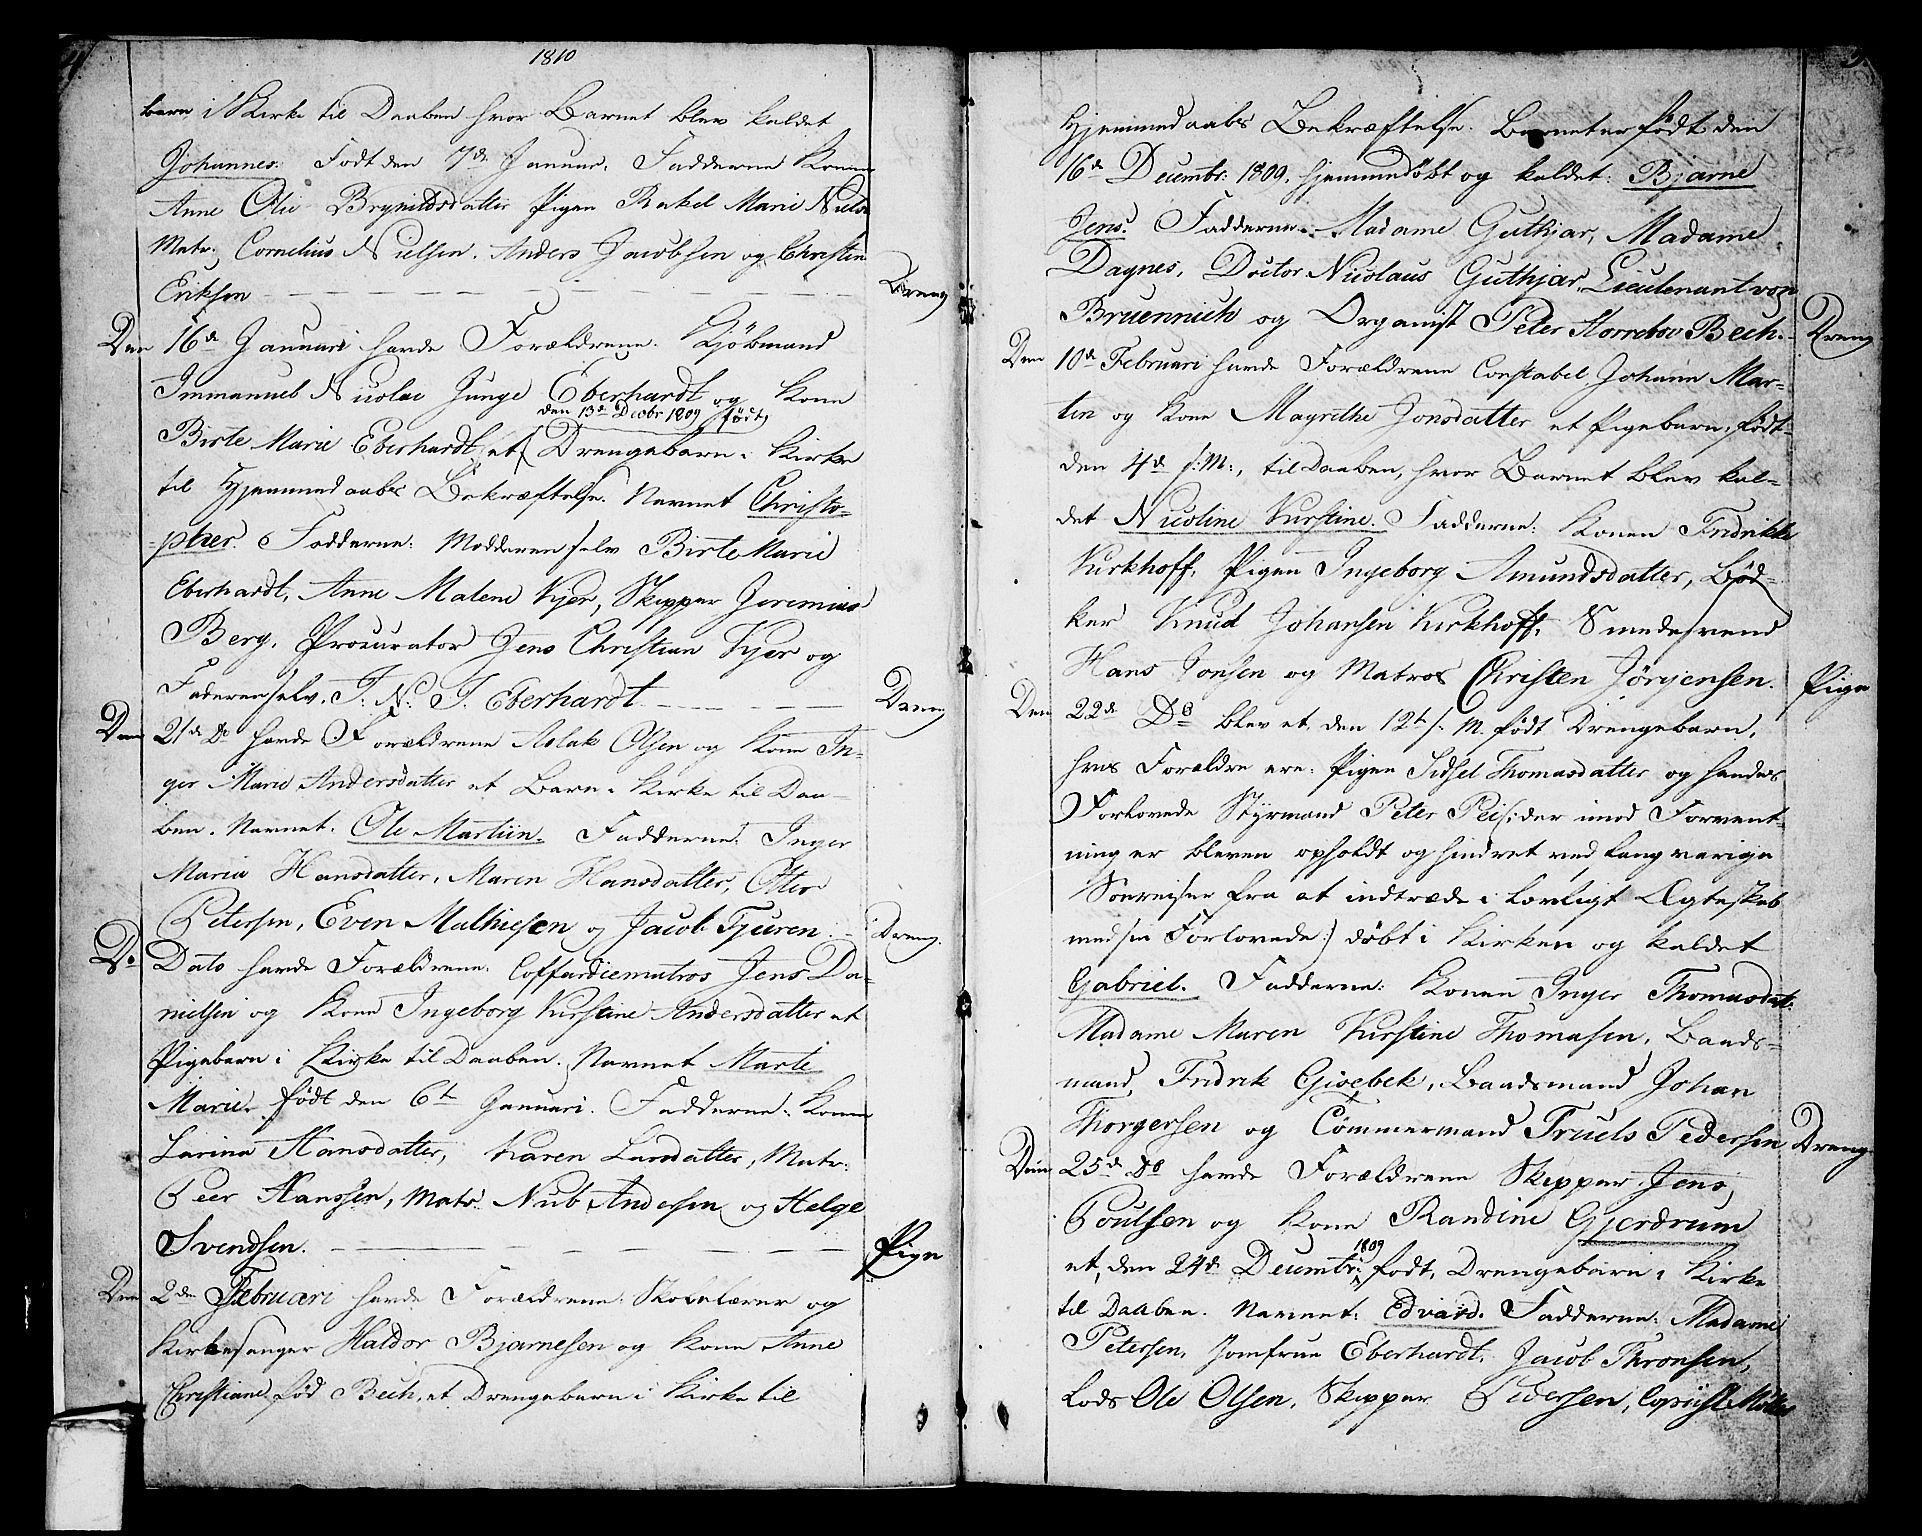 4
1810
barn i Kirke til Daaben hvor Barnet blev kaldet
Johannes. Født den 7de Januar. Fadderne Konen
Anne Olie Brynildsdatter Pigen Rakel Marie Niels
Matr: Cornelius Nielsen. Anders Jacobsen og Christen
Eriksen Dreng
Den 16de Januari havde Forældrene. Kjøbmand
Immanuel Nicolai Junge Eberhardt og Kone
den 13de Decbr 1809 født
Birte Marie Eberhardt, et Drengebarn i Kirke
til Hjemmedaabs Bekræftelse. Navnet Christo-
-pher. Fadderne: Modderen selv Birte Marie
Eberhardt, Anne Malene Kyer, Skipper Jeremias
Berg, Procurator Jens Christian Kyer og
Faderen selv. I: N: J. Eberhardt Dreng
Den 21de Do havde Forældrene Aslak Olsen og Kone In-
ger Marie Andersdatter et Barn i Kirke til Daa-
ben. Navnet. Ole Martiin. Fadderne: Inger
Maria Hansdatter, Maren Hansdatter, Otter
Petersen, Even Mathiesen og Jacob Tjuren. Dreng.
Do Dato havde Forældrene: Coffardiematros Jens Da-
nielsen og Kone Ingeborg Kirstine Andersdatter et
Pigebarn i Kirke til Daaben. Navnet Marte
Marie. født den 6te Januari. Fadderne: Konen
Larina Hansdatter, Karen Larsdatter, Matr:
Peer Hanssen, Matr. Nub Andersen og Helge
Svendsen. Pige
Den 2den Februari havde Forældrene: Skolelærer og
Kirkesanger Haldor Bjarnesen og Kone Anne
Christiane fød Bech, et Drengebarn i Kirke til
Hjemmedaabs Bekræftelse. Barnet er født den
16de Decembr: 1809. hjemmedøbt og kaldet: Bjarne
Jens. Fadderne: Madame Guthjar, Madame
Dagnes, Doctor Nicolaus Guthjar, Lieutenant von
Bruennich og Organist Peter Horrebov Bech. Dreng
Den 10de Februari havde Forældrene Constabel Johann Mar-
tin og Kone Magrethe Jonsdatter et Pigebarn, født
den 4de s: M:, til Daaben, hvor Barnet blev kal-
det Nicoline Kirstine. Fadderne: Konen Fredrikke
Kirkhoff, Pigen Ingeborg Amundsdatter, Bød-
ker Knud Johansen Kirkhoff, Smedesvend
Hans Jonsen og Matros Christen Jörgensen. Pige
Den 22de Do blev et, den 12te s. M. født Drengebarn,
hvis Forældre ere: Pigen Sidsel Thomasdatter og hendes
Forlovede Styrmand Peter Pei (: der imod Forvent-
ning er bleven opholdt og hindret ved langvarige
Søereiser fra at indtræde i lovligt Ægteskab
med sin Forlovede :) døbt i Kirken og kaldet
Gabriel. Fadderne: Konen Inger Thomasdat:
Madame Maren Kirstine Thomasen, Baads-
mand Fredrik Givebek, Baadsmand Johan
Thorgersen og Tømmermand Truels Pedersen Dreng.
Den 25de Do havde Forældrene Skipper Jens
Poulsen og Kone Randine Gjerdrum
1809
et, den 24de Decembr: født, Drengebarn i Kirke
til Daaben. Navnet: Edvard. Fadderne: Madame
Petersen, Jomfrue Eberhardt, Jacob Thronsen,
Lods Ole Olsen, Skipper Pedersen, Copiist Møller